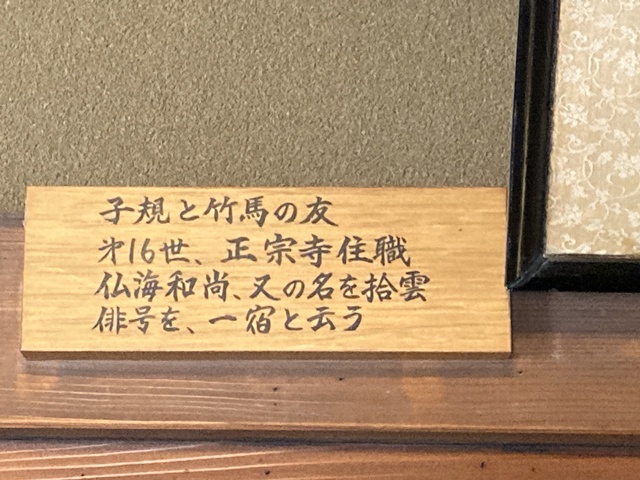 子規と竹馬の友
㐧16世、正宗寺住職
仏海和尚、又の名を拾雲
俳号を、一宿と云う